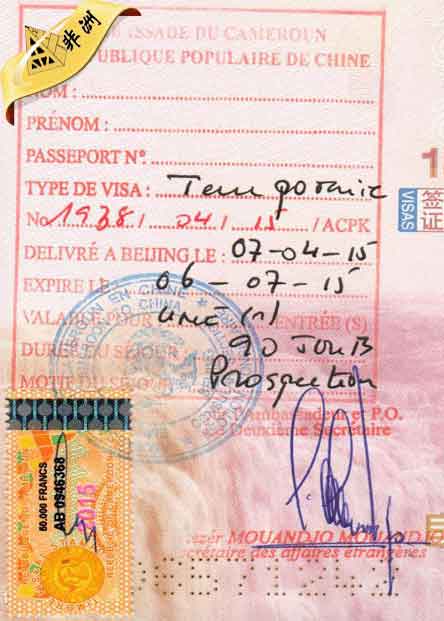 非洲
SSADE DU CAMEROUN
PUBLIQUE POPULAIRE DE CHINE
NOM :
PRÉNOM :
PASSEPORT N° :
TYPE DE VISA : Temporaire
No 1938 / 04 / 15 / ACPK
DELIVRÉ A BEIJING LE : 07-04-15
EXPIRE LE : 06-07-15
VALABLE POUR une (1) ENTRÉE (S)
DURÉE DU SÉJOUR 90 JOURS
MOTIF DU SÉJOUR Prospection
l'Ambassadeur et P.O.
Deuxième Secrétaire
MOUANDJO MOUAND
crétaire des affaires étrangères
EN CHINE
CHINA
50.000 FRANCS
AB 0946368
2015
VISAS
签证
1